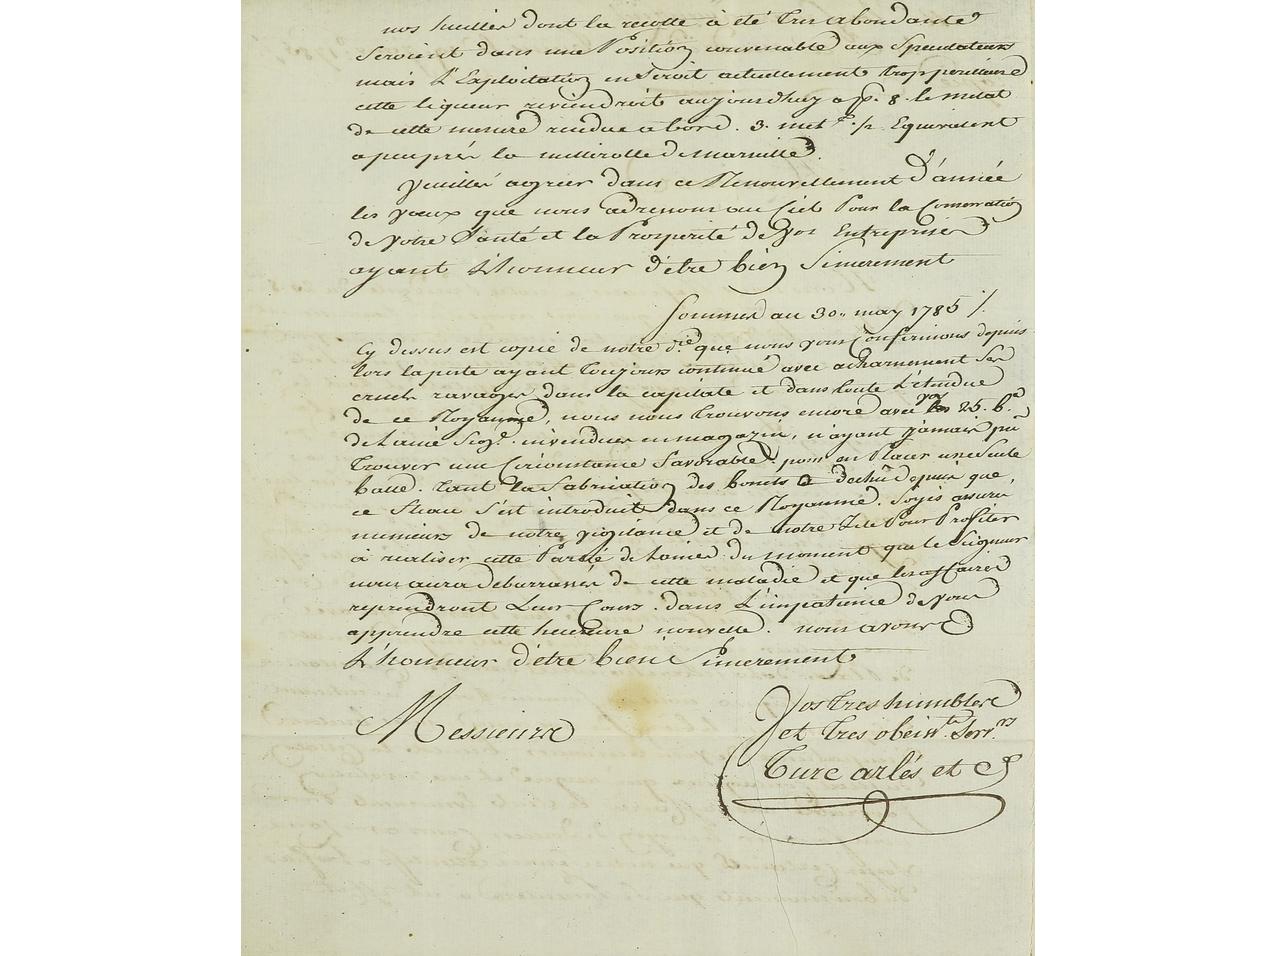 nos huilles dont la recolte à été Tres abondante
Seroient dans une Position convenable aux Speculateurs
mais L'Exploitation en Seroit actuellement trop perilleuse
cette liqueur reviendroit aujourdhuy a p. 8. le metal
de cette mesure rendue a bord. 3. met. ½ Equivalent
apeuprés la millerolle de Marseille.
Veuillés agréer dans ce Renouvellement D'année
les vœux que nous adressons au Ciel Pour la Conservation
de Votre Santé et la Prosperité de Vos Entreprises
ayant L'honneur d'etre bien Sincerement
Sommes au 30. may 1785 ⁒
Cy dessus est copie de notre d.re que nous vous Confirmons depuis
lors la peste ayant Toujours continué avec acharnement Ses
cruels ravages dans la capitale et dans toute L'étendue
de ce Royaume, nous nous trouvons encore avec vos 25. b.es
de Laine Seg.e invendues en magazin, n'ayant jamais pu
trouver une Circonstance favorable pour en Placer une Seule
balle. Tant la Fabrication des bonets a dechû depuis que
ce Fleau S'est introduit dans ce Royaume. Soyés assurés
messieurs de notre vigilance et de notre Zele Pour Profiter
à réaliser cette Partie de Laines du moment que le Seigneur
nous aura debarrassés de cette maladie et que les affaires
reprendront Leur Cours. dans L'impatience de vous
apprendre cette heureuse nouvelle. nous avons
L'honneur d'etre bien Sincerement
Messieurs
Vos tres humbles
et Tres obeiss.ts Serv.rs
Turc arlés et C